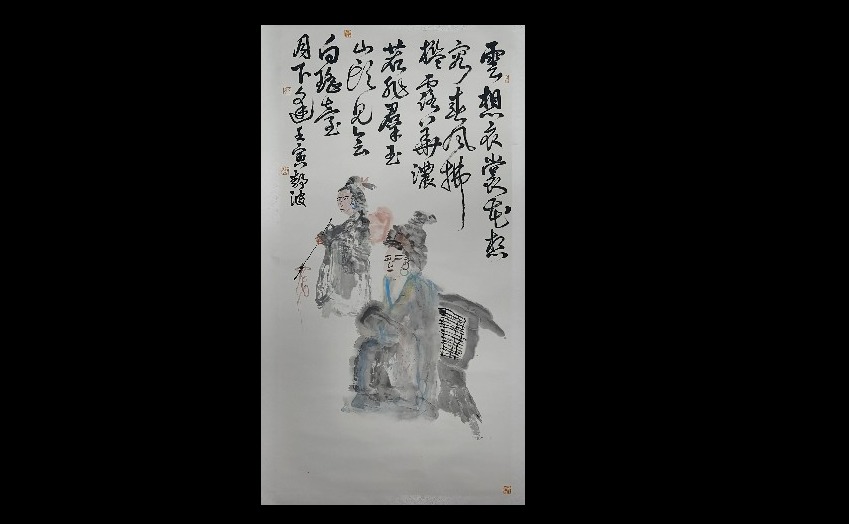 雲想衣裳花想
容春風拂
檻露華濃
若非羣玉
山頭見會
向瑤臺
月下逢壬寅鄭波